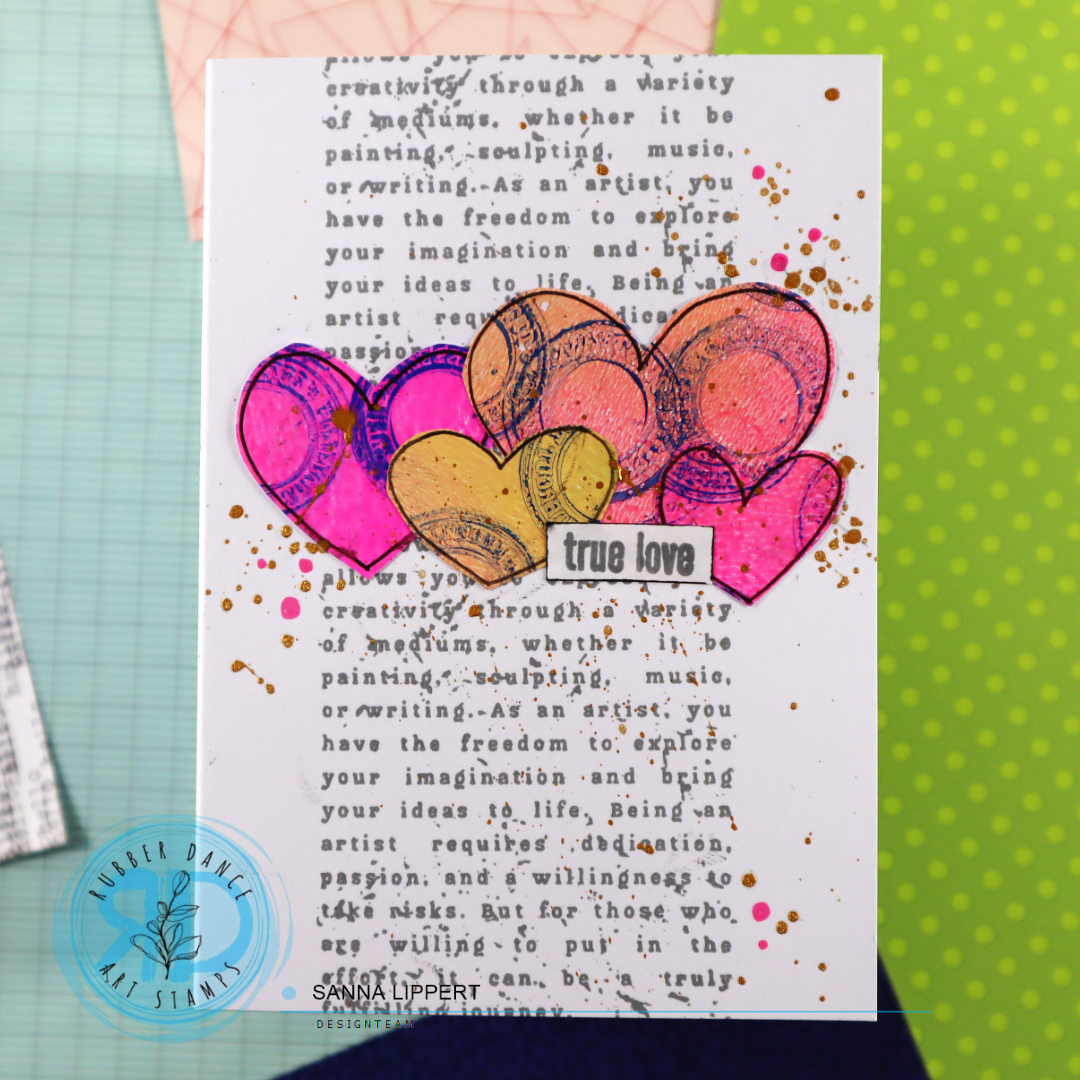 allows you to express your
creativity through a variety
of mediums, whether it be
painting, sculpting, music,
or writing. As an artist, you
have the freedom to explore
your imagination and bring
your ideas to life. Being an
artist
passion
true love
allows you to
creativity through a variety
of mediums, whether it be
painting, sculpting, music,
or writing. As an artist, you
have the freedom to explore
your imagination and bring
your ideas to life. Being an
artist requires dedication,
passion, and a willingness to
take risks. But for those who
are willing to put in the
effort, it can be a truly
fulfilling journey.
RUBBER DANCE
RD
ART STAMPS
SANNA LIPPERT
DESIGNTEAM